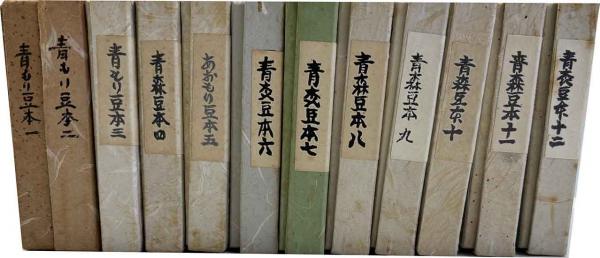 青もり豆本一
青もり豆本二
青もり豆本三
青森豆本四
あおもり豆本五
青森豆本六
青森豆本七
青森豆本八
青森豆本九
青森豆本十
青森豆本十一
青森豆本十二